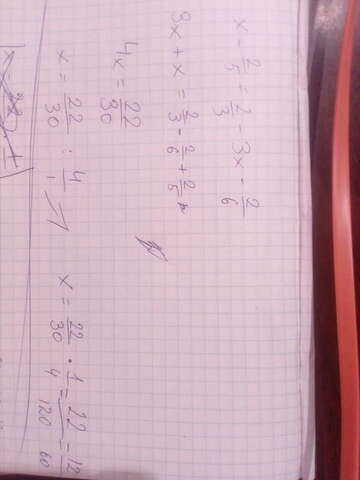 x - 2/5 = 2/3 - 3x - 2/6
3x + x = 2/3 - 2/6 + 2/5
4x = 22/30
x = 22/30 : 4/1
x = 22/30 · 1/4 = 22/120 - 12/60